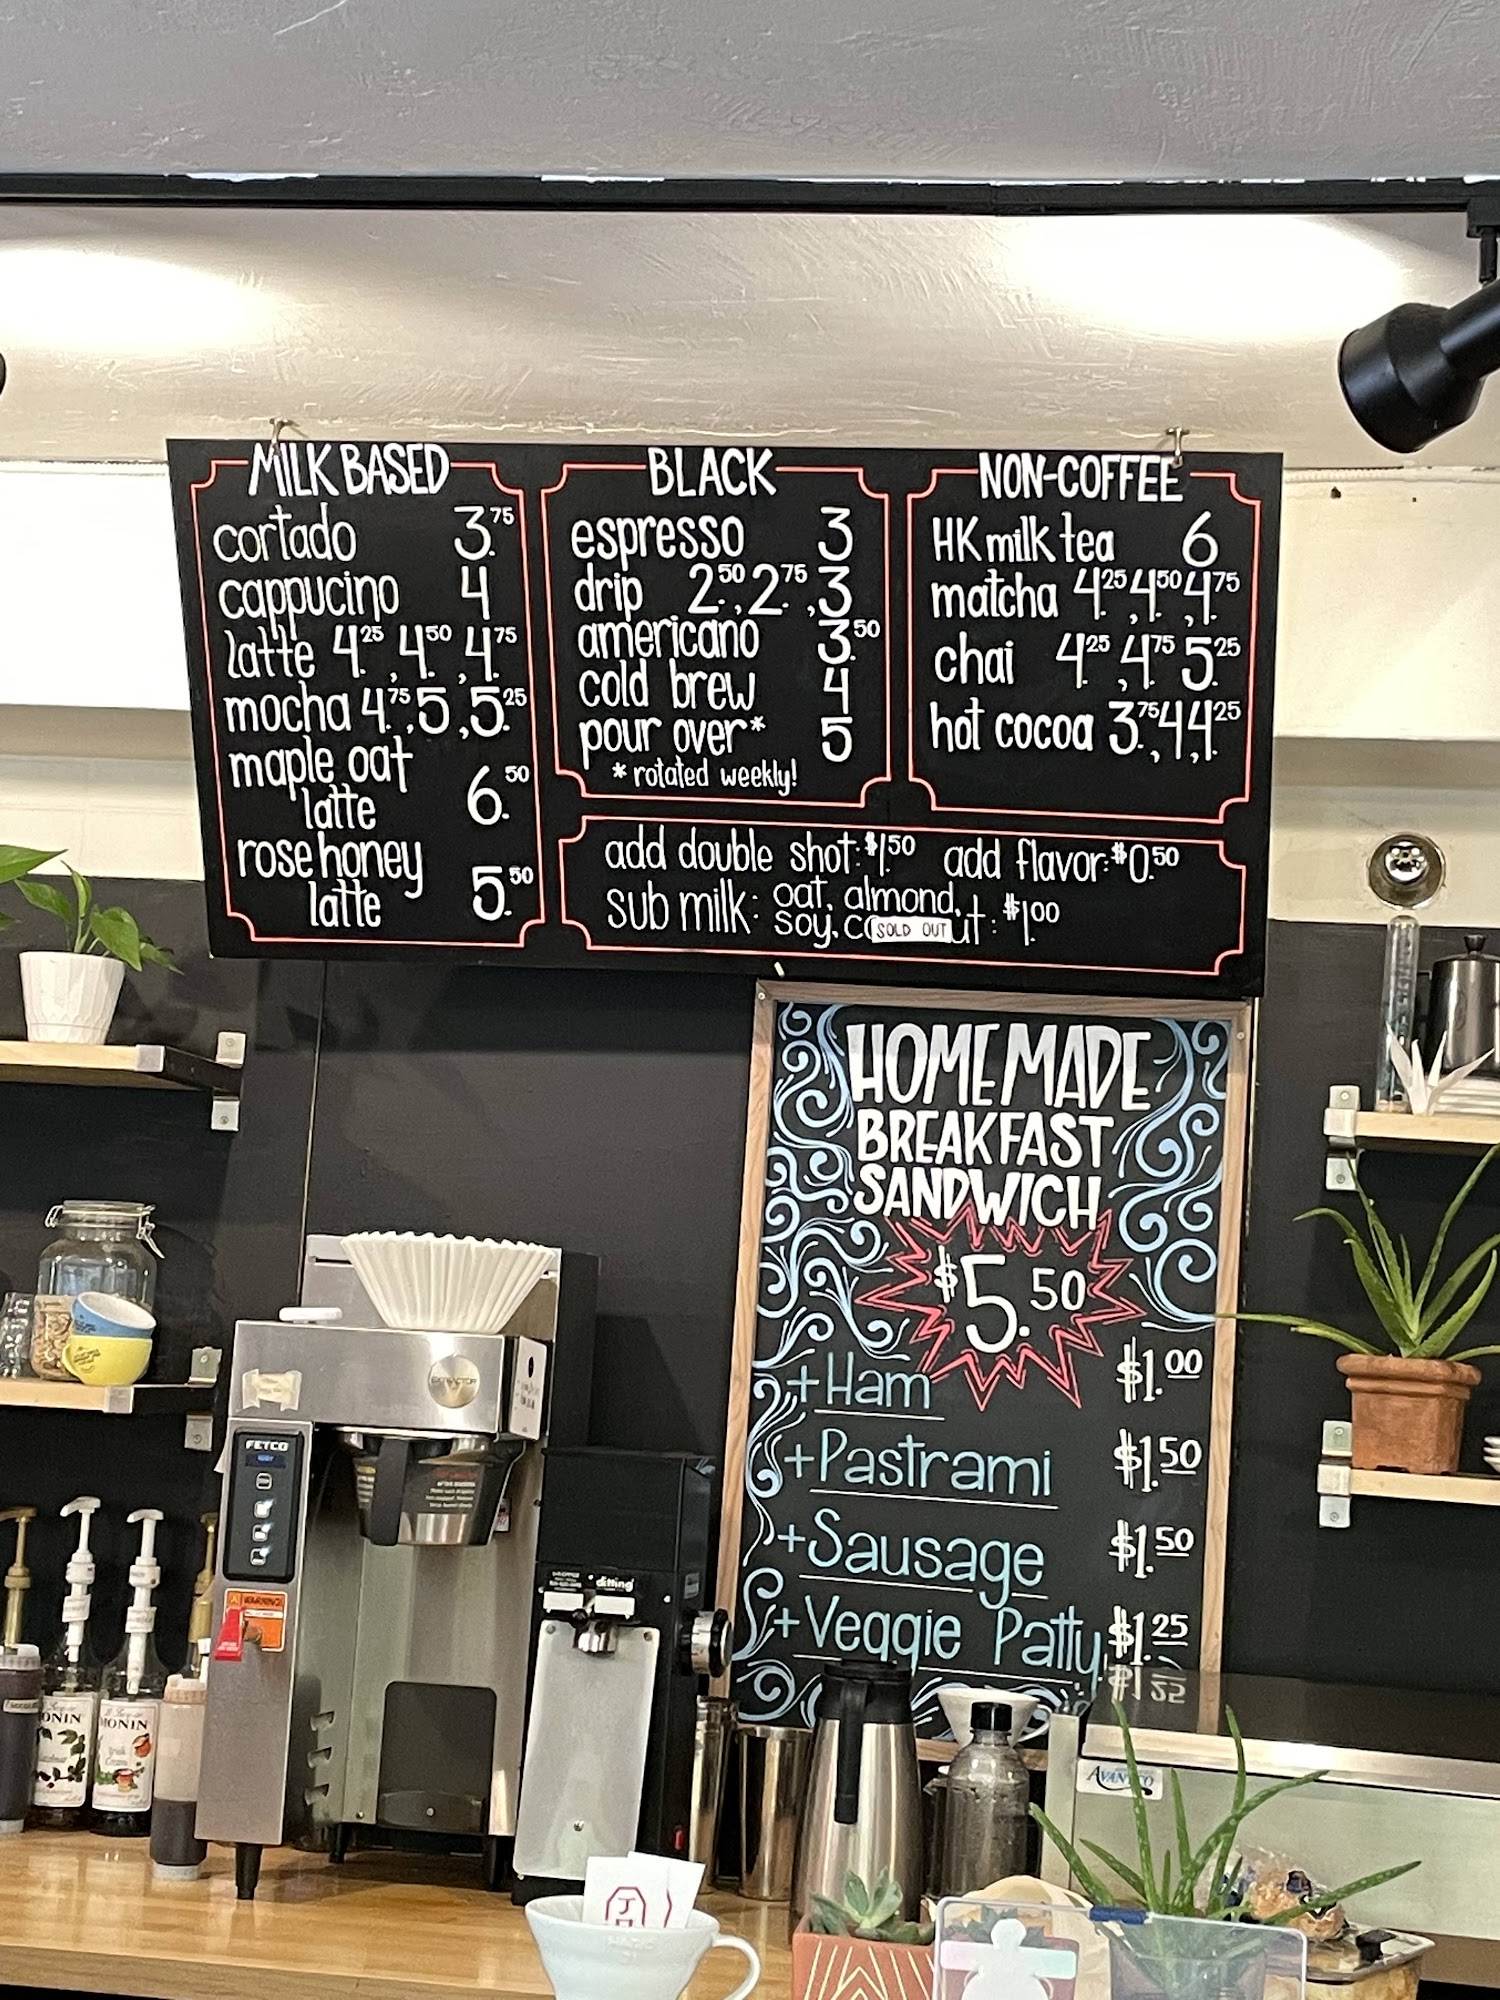 MILK BASED
cortado 3.75
cappucino 4
latte 4.25, 4.50, 4.75
mocha 4.75, 5, 5.25
maple oat
latte 6.50
rose honey
latte 5.50
BLACK
espresso 3
drip 2.50, 2.75, 3
americano 3.50
cold brew 4
pour over* 5
* rotated weekly!
NON-COFFEE
HK milk tea 6
matcha 4.25, 4.50, 4.75
chai 4.25, 4.75 5.25
hot cocoa 3.75, 4, 4.25
add double shot: $1.50 add flavor: $0.50
sub milk: oat, almond,
soy, co SOLD OUT ut: $1.00
HOMEMADE
BREAKFAST
SANDWICH
$5.50
+Ham $1.00
+Pastrami $1.50
+Sausage $1.50
+Veggie Patty $1.25
EXTRACTOR
FETCO
WARNING
ditting
MONIN
MONIN
AVANTCO